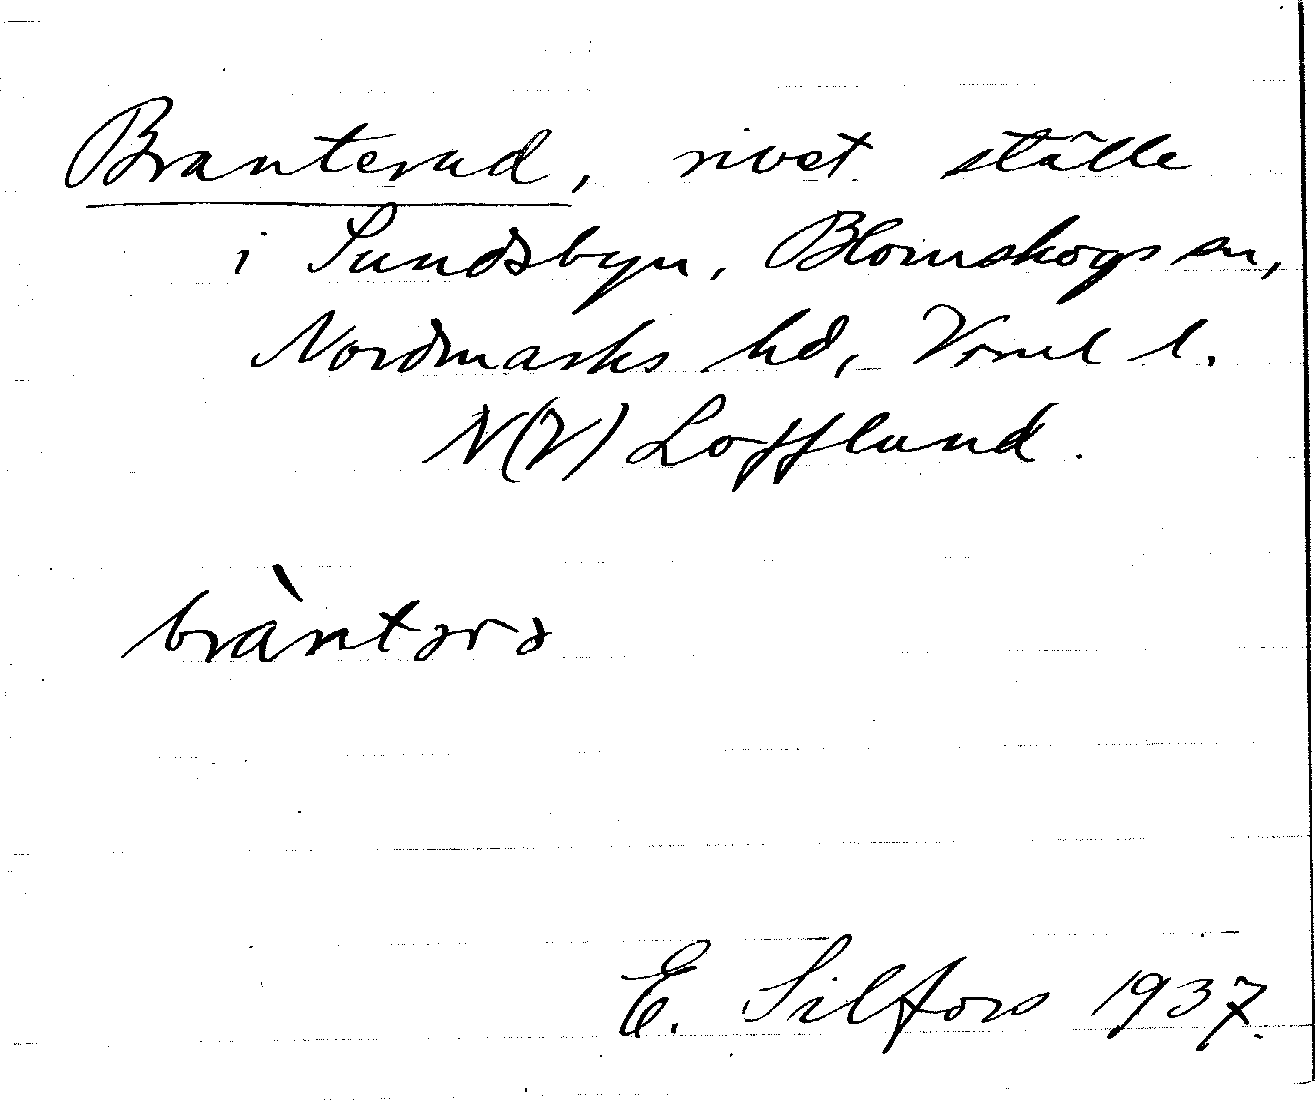 Branterud, rivet ställe
i Sundsbyn, Blomskogs sn,
Nordmarks hd, Vrml l.
N(V) Lofflund.
bràntərə
E. Silfors 1937.